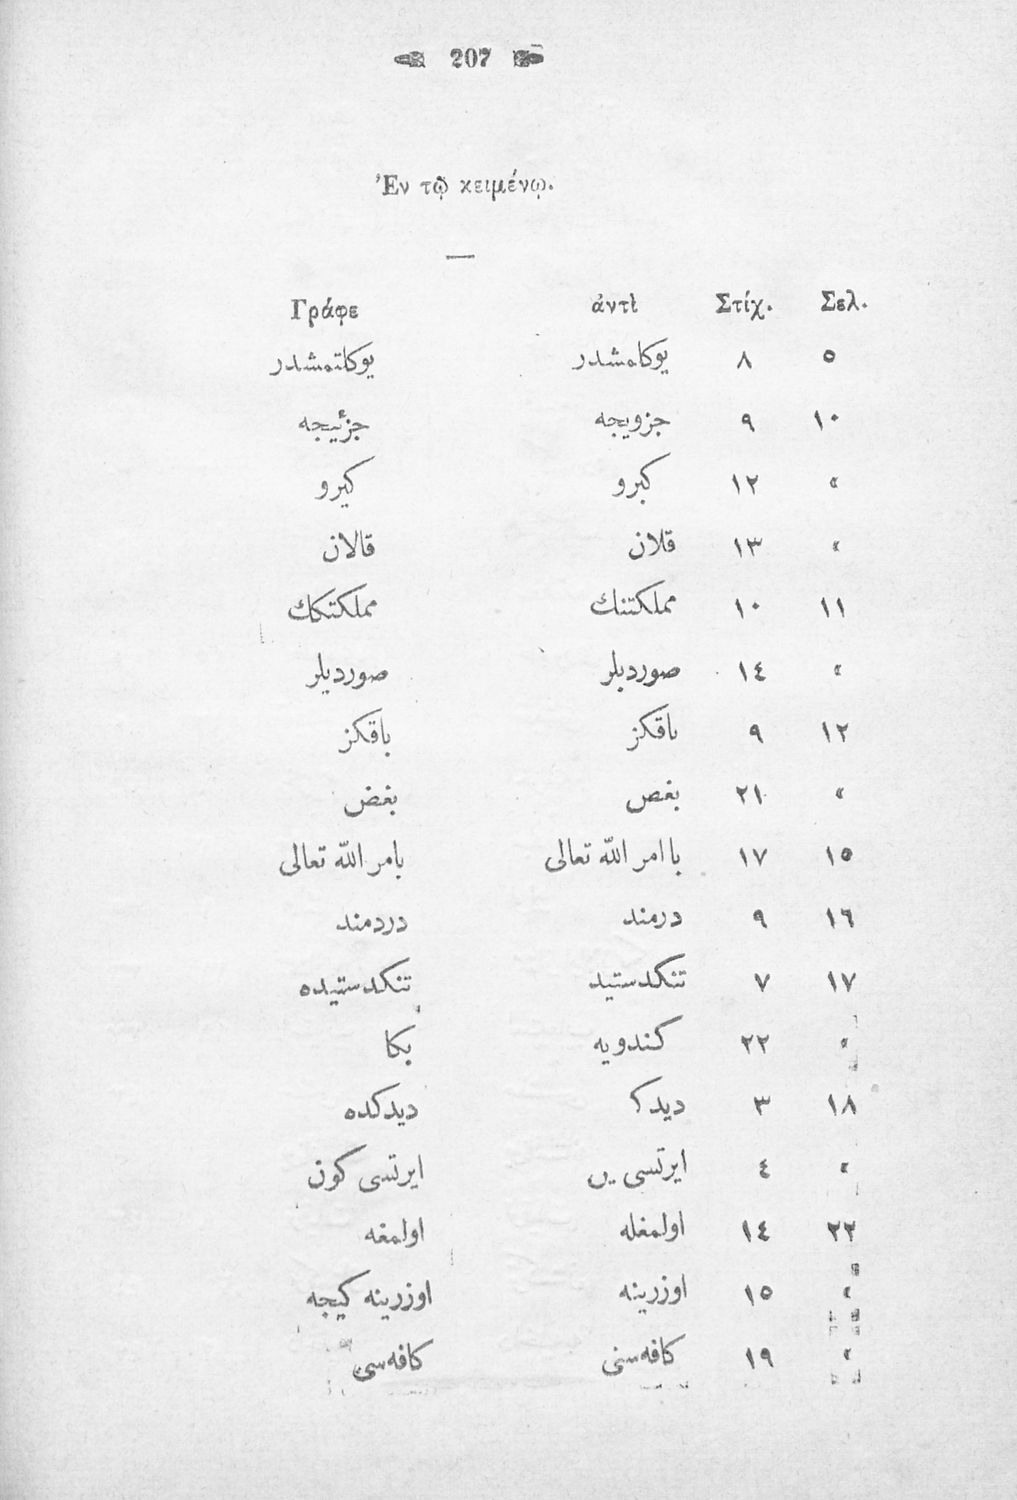 207
Ἐν τῷ κειμένῳ.
Σελ. Στίχ. ἀντὶ Γράφε
٥ ٨ یوكامشدر یوكاتمشدر
١٠ ٩ جزویجه جزئیجه
« ١٢ كبرو كیرو
« ١٣ قلان قالان
١١ ١٠ مملكتنك مملكتكك
« ١٤ صوردبلر صوردیلر
١٢ ٩ ٮاقكز باقكز
« ٢١ بغص بغض
١٥ ١٧ با امر الله تعالی بامر الله تعالی
١٦ ٩ درمند دردمند
١٧ ٧ تنكدستید تنكدستیده
« ٢٢ كندویه بكا
١٨ ٣ دیدك دیدكده
« ٤ ایرتسی ایرتسی كون
٢٢ ١٤ اولمغله اولمغه
« ١٥ اوزرینه اوزرینه كیجه
« ١٩ كافه‌سنی كافه‌سی